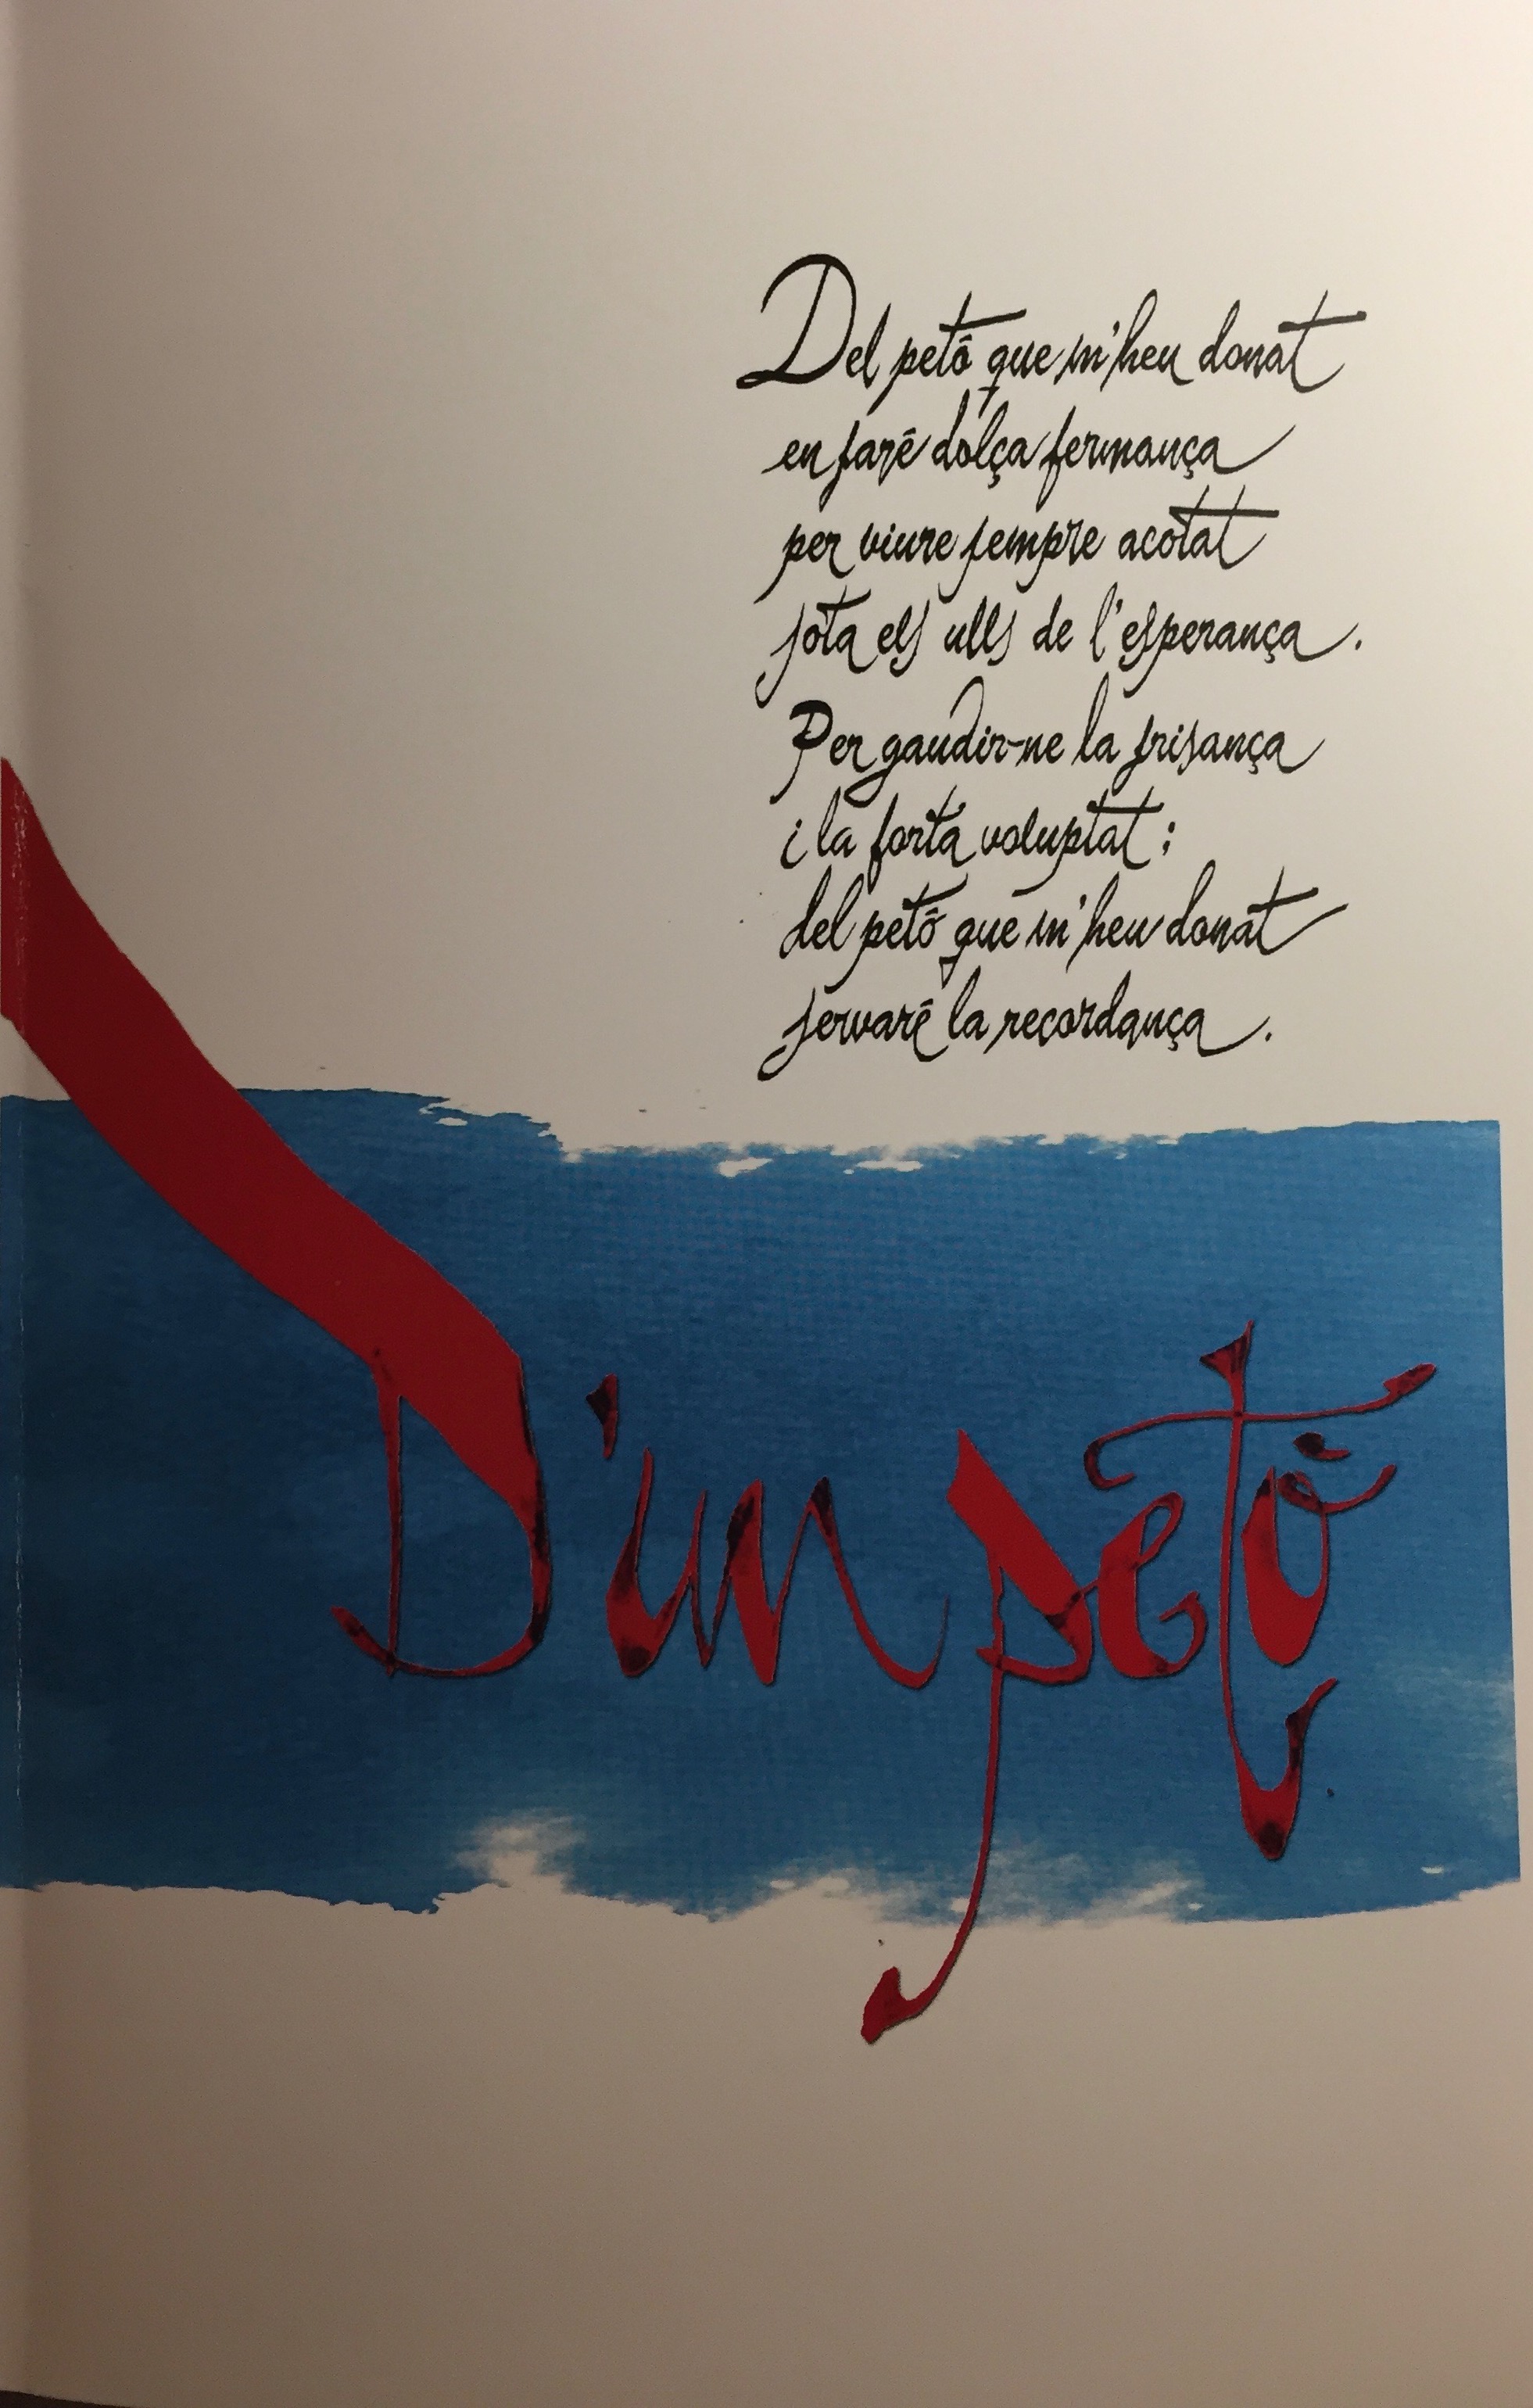 Del petó que m'heu donat
en faré dolça fermança
per viure sempre acotat
sota els ulls de l'esperança.
Per gaudir-ne la frisança
i la forta voluptat;
del petó que m'heu donat
servaré la recordança.
D'un petó